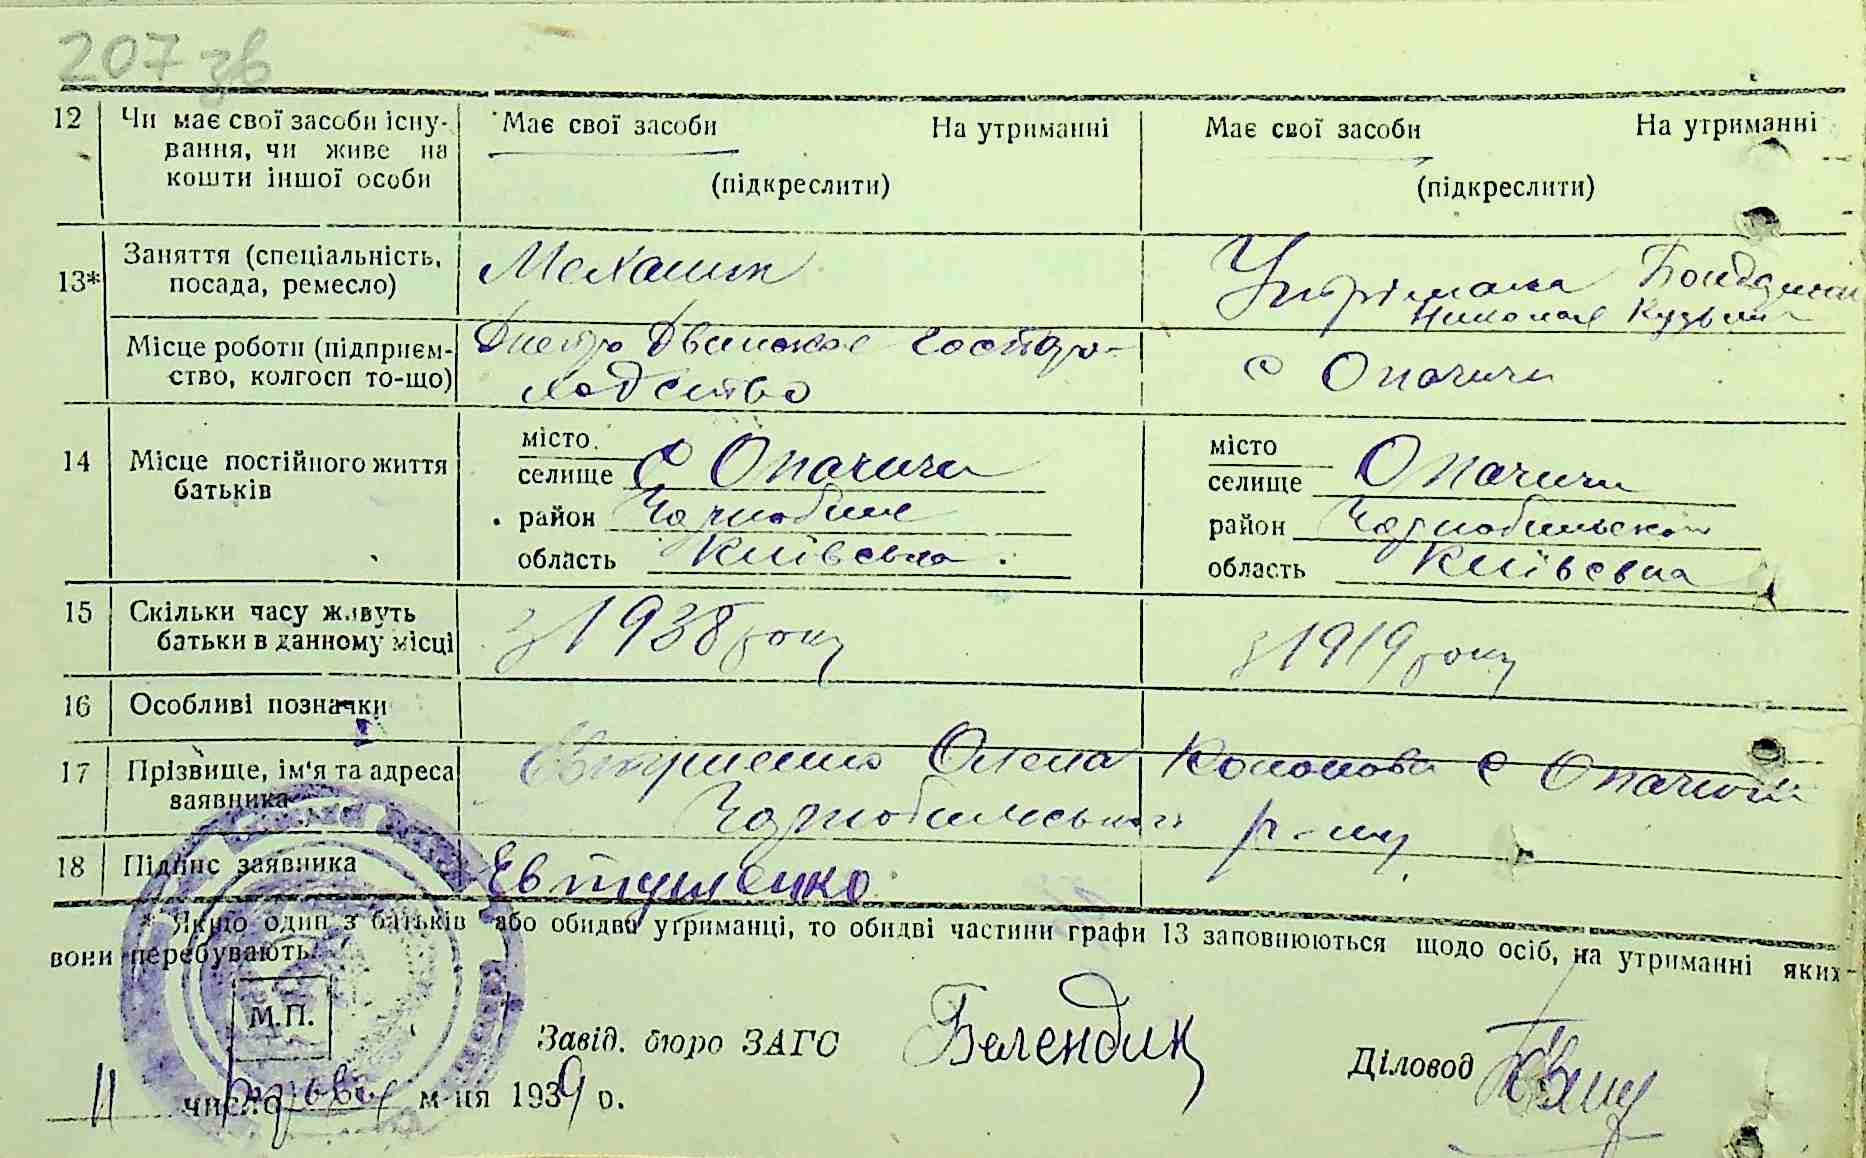 207 зв
12 Чи має свої засоби існу- Має свої засоби На утриманні Має свої засоби На утриманні
вання, чи живе на
кошти іншої особи (підкреслити) (підкреслити)
13* Заняття (спеціальність, Механик Утрімана
посада, ремесло) Николая Кузьмич
Місце роботи (підприєм- Днепро Двинское господо-
ство, колгосп то-що) с Опачичи
місто місто
14 Місце постійного життя селище с Опачичи селище Опачичи
батьків район Чорнобиль район Чорнобильской
область Київська область Київська
15 Скільки часу живуть з 1938 року з 1919 року
батьки в данному місці
16 Особливі позначки
17 Прізвище, ім'я та адреса Євтушенко Олена Кононовна с Опачичи
заявника Чорнобильського р-ну
18 Підпис заявника Евтушенко
* Якщо один з батьків або обидва утриманці, то обидві частини графи 13 заповнюються щодо осіб, на утриманні яких
вони перебувають.
М.П.
Завід. бюро ЗАГС Белендик Діловод
11 число м-ця 1939 р.